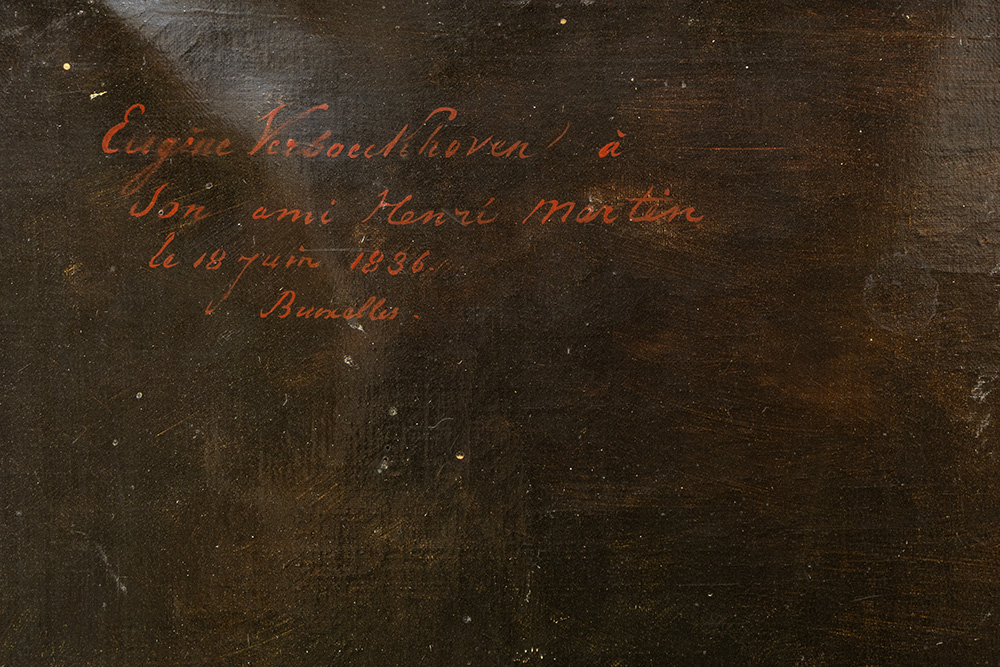 Eugène Verboeckhoven à
Son ami Henri Martin
le 18 juin 1836.
Bruxelles.